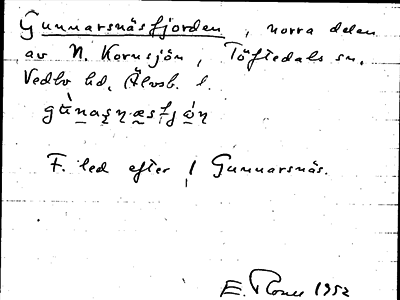 Gunnarsnäsfjorden, norra delen
av N. Kornsjön, Töftedals sn.
Vedbo hd, Älvsb. l.
F. led efter / Gunnarsnäs.
E. 1952